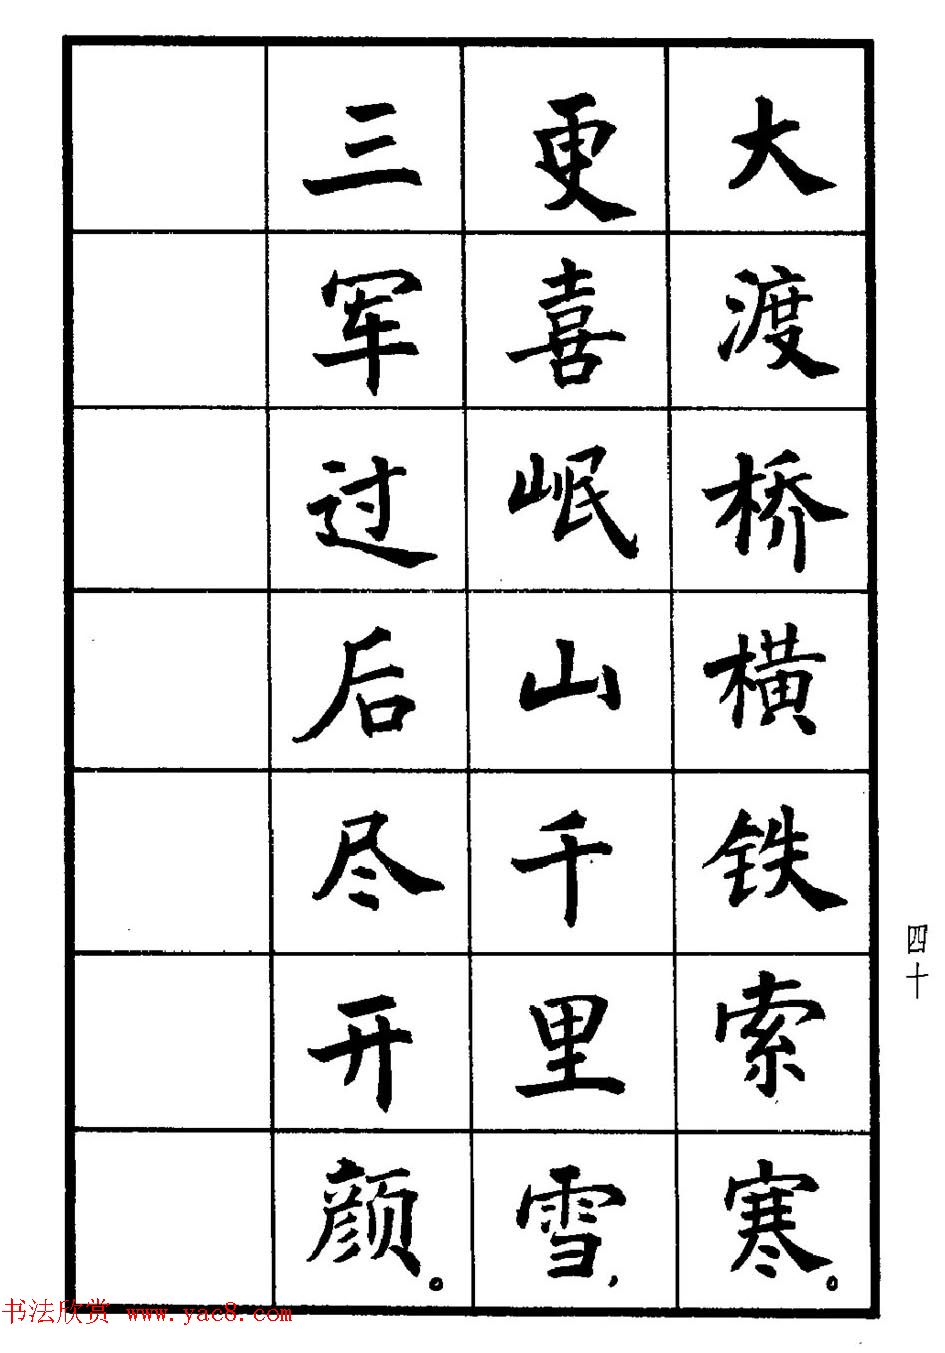 大渡桥横铁索寒。
更喜岷山千里雪，
三军过后尽开颜。
四十
书法欣赏 www.yac8.com